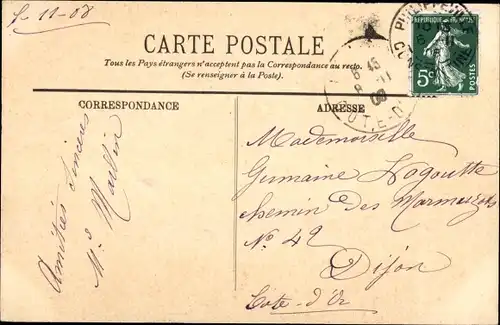 5-11-08
CARTE POSTALE
Tous les Pays étrangers n'acceptent pas la Correspondance au recto.
(Se renseigner à la Poste).
CORRESPONDANCE
ADRESSE
Amitiés Sincères
M.
REPUBLIQUE FRANÇAISE
5c
POSTES
6 45
8 11
08
Mademoiselle
Germaine Logoutte
chemin des Marmuzots
No 42
Dijon
Côte-d'Or